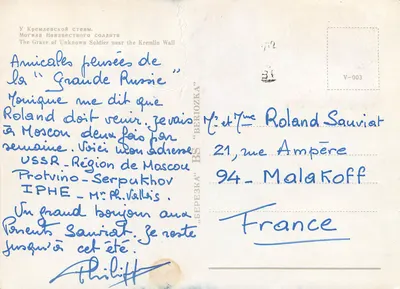 У Кремлевской стены
Могила Неизвестного солдата
The Grave of Unknown Soldier near the Kremlin Wall
Amicales pensées de
la "Grande Russie"
Monique me dit que
Roland doit venir. Je vais
à Moscou deux fois par
semaine. Voici mon adresse
USSR - Région de Moscou
Protvino - Serpukhov
IPHE - Mr Ph. Vallis.
Un grand bonjour aux
Parents Sauviat. Je reste
jusqu'à cet été.
"БЕРЕЗКА" BS "BERIOZKA"
V-002
Mr et Mme Roland Sauviat
21, rue Ampère
94 - Malakoff
France